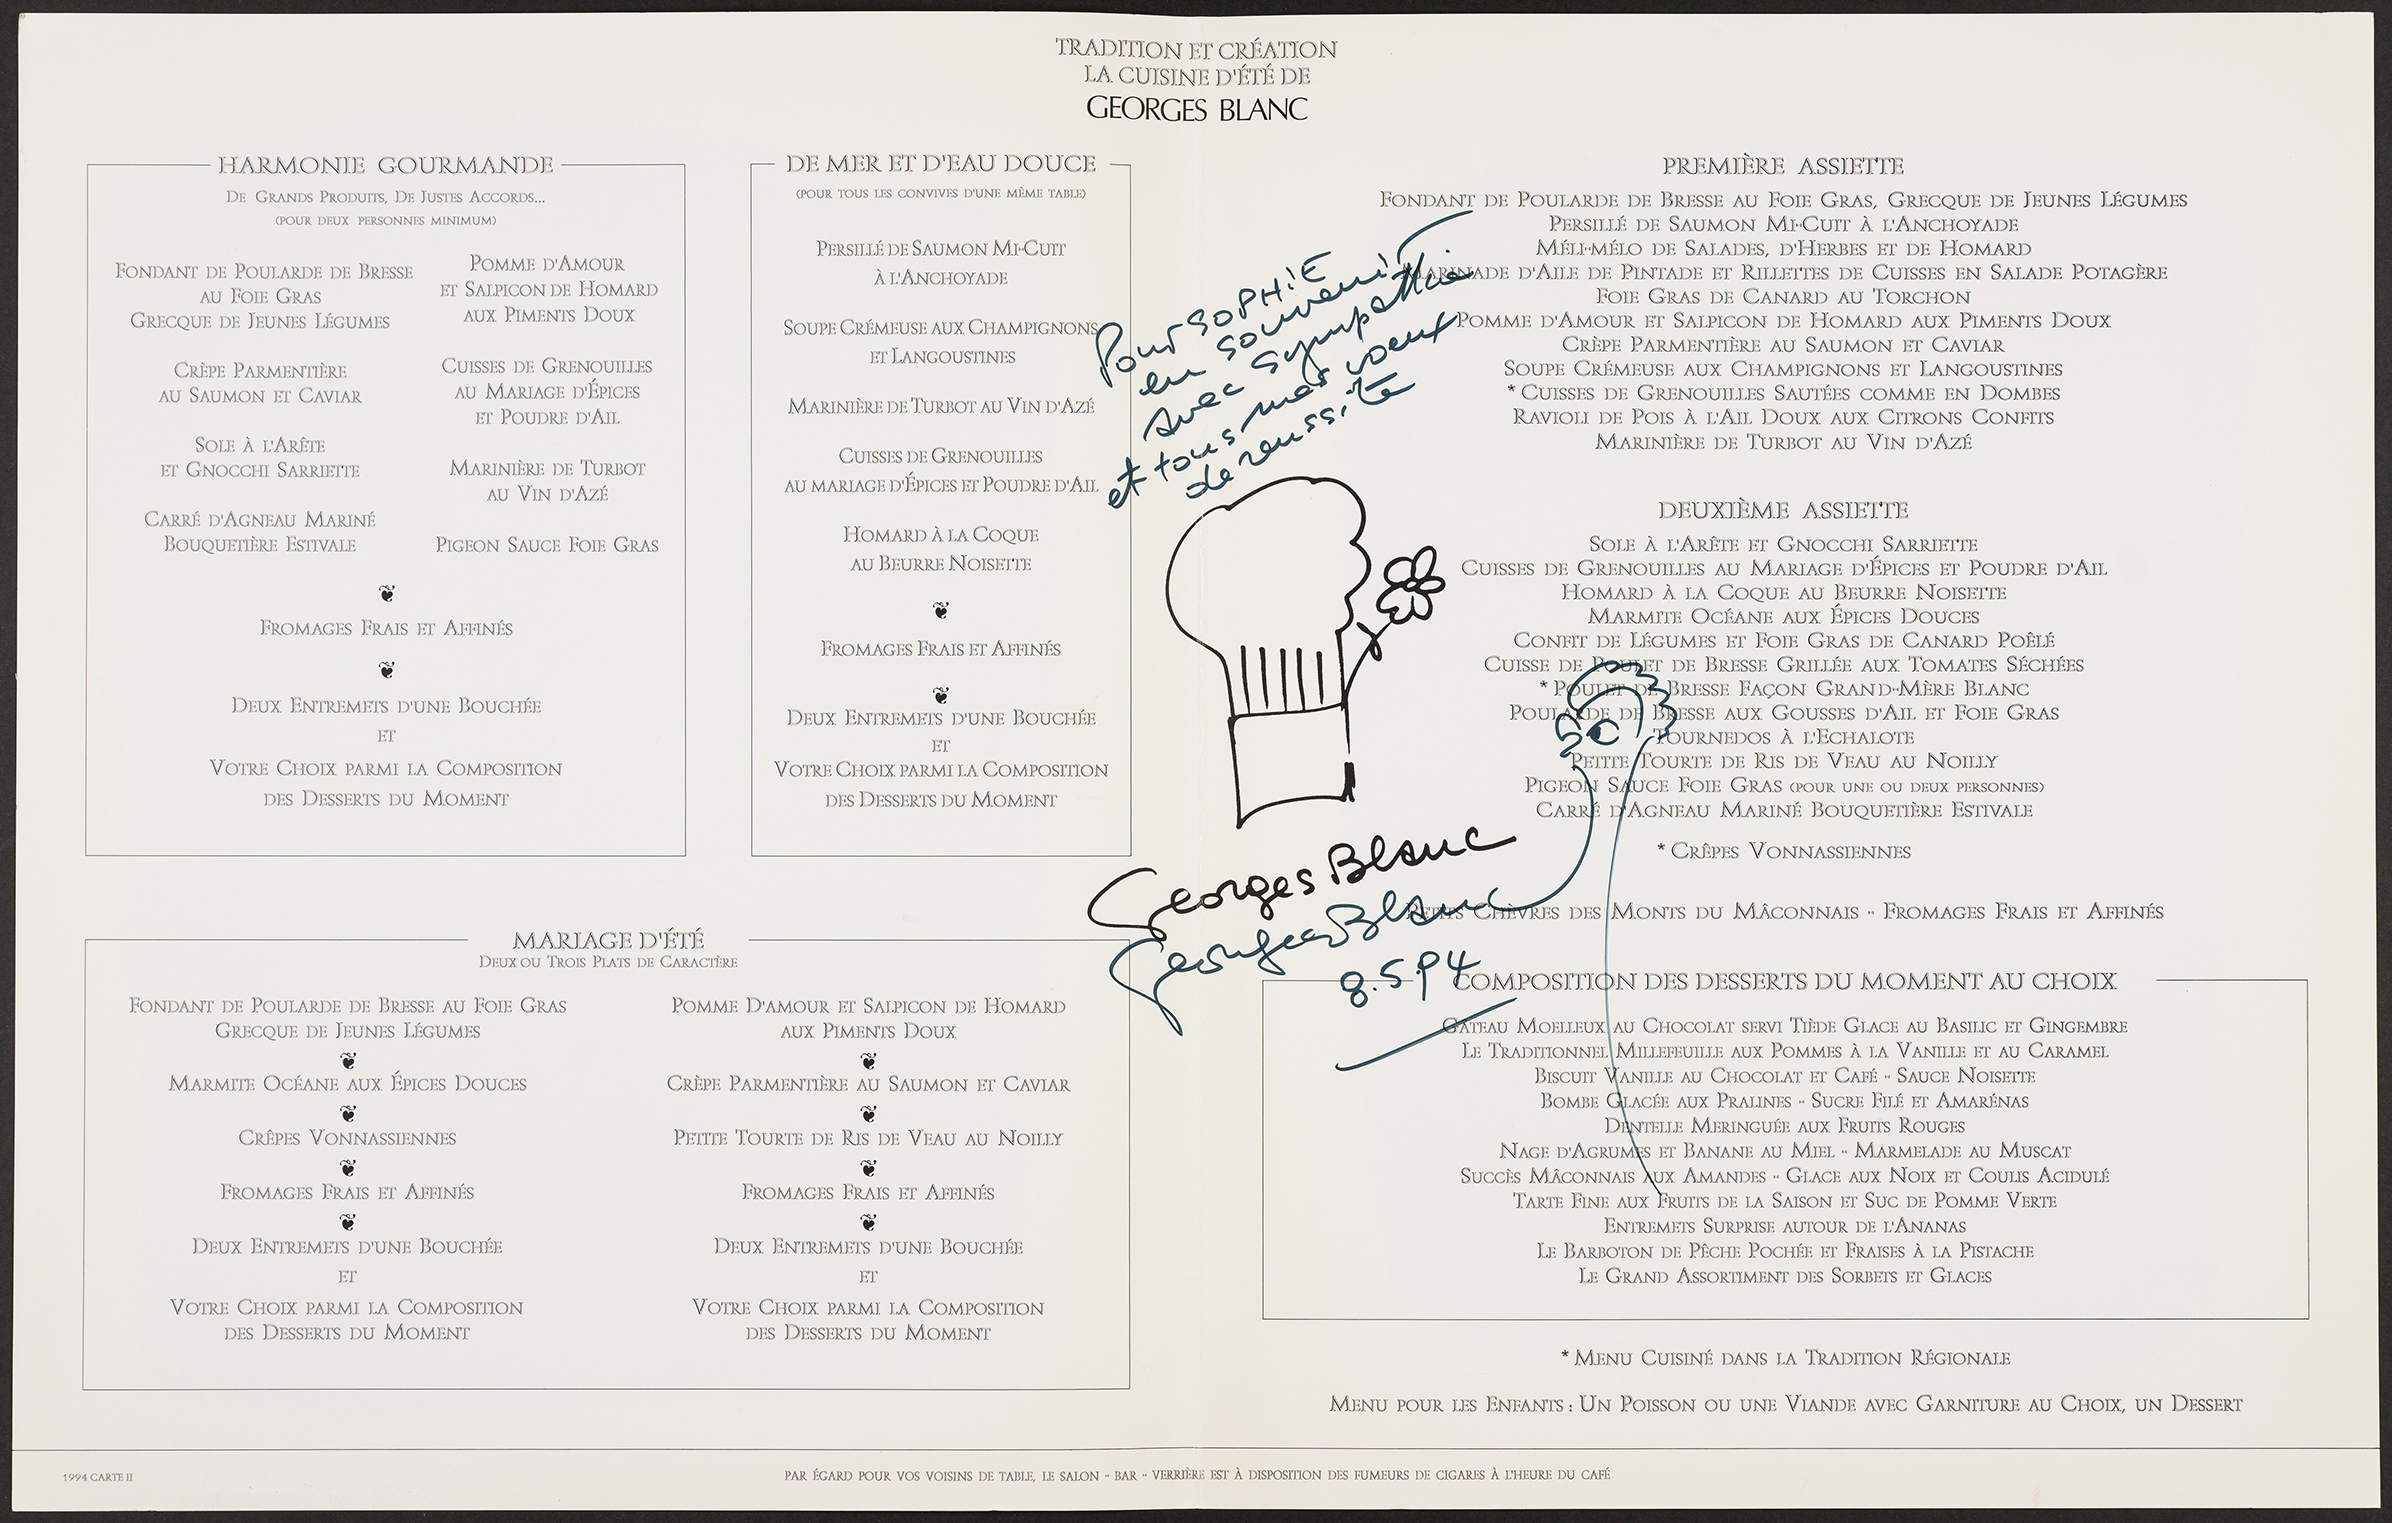 TRADITION ET CRÉATION
LA CUISINE D'ÉTÉ DE
GEORGES BLANC
HARMONIE GOURMANDE
DE GRANDS PRODUITS, DE JUSTES ACCORDS...
(POUR DEUX PERSONNES MINIMUM)
FONDANT DE POULARDE DE BRESSE
AU FOIE GRAS
GRECQUE DE JEUNES LÉGUMES
CRÈPE PARMENTIÈRE
AU SAUMON ET CAVIAR
SOLE À L'ARÊTE
ET GNOCCHI SARRIETTE
CARRÉ D'AGNEAU MARINÉ
BOUQUETIÈRE ESTIVALE
POMME D'AMOUR
ET SALPICON DE HOMARD
AUX PIMENTS DOUX
CUISSES DE GRENOUILLES
AU MARIAGE D'ÉPICES
ET POUDRE D'AIL
MARINIÈRE DE TURBOT
AU VIN D'AZÉ
PIGEON SAUCE FOIE GRAS
FROMAGES FRAIS ET AFFINÉS
DEUX ENTREMETS D'UNE BOUCHÉE
ET
VOTRE CHOIX PARMI LA COMPOSITION
DES DESSERTS DU MOMENT
DE MER ET D'EAU DOUCE
(POUR TOUS LES CONVIVES D'UNE MÊME TABLE)
PERSILLÉ DE SAUMON MI-CUIT
À L'ANCHOYADE
SOUPE CRÉMEUSE AUX CHAMPIGNONS
ET LANGOUSTINES
MARINIÈRE DE TURBOT AU VIN D'AZÉ
CUISSES DE GRENOUILLES
AU MARIAGE D'ÉPICES ET POUDRE D'AIL
HOMARD À LA COQUE
AU BEURRE NOISETTE
FROMAGES FRAIS ET AFFINÉS
DEUX ENTREMETS D'UNE BOUCHÉE
ET
VOTRE CHOIX PARMI LA COMPOSITION
DES DESSERTS DU MOMENT
MARIAGE D'ÉTÉ
DEUX OU TROIS PLATS DE CARACTÈRE
FONDANT DE POULARDE DE BRESSE AU FOIE GRAS
GRECQUE DE JEUNES LÉGUMES
MARMITE OCÉANE AUX ÉPICES DOUCES
CRÊPES VONNASSIENNES
FROMAGES FRAIS ET AFFINÉS
DEUX ENTREMETS D'UNE BOUCHÉE
ET
VOTRE CHOIX PARMI LA COMPOSITION
DES DESSERTS DU MOMENT
POMME D'AMOUR ET SALPICON DE HOMARD
AUX PIMENTS DOUX
CRÈPE PARMENTIÈRE AU SAUMON ET CAVIAR
PETITE TOURTE DE RIS DE VEAU AU NOILLY
FROMAGES FRAIS ET AFFINÉS
DEUX ENTREMETS D'UNE BOUCHÉE
ET
VOTRE CHOIX PARMI LA COMPOSITION
DES DESSERTS DU MOMENT
Pour SOPHIE
en souvenir
avec sympathie
et tous mes voeux
de reussite
Georges Blanc
Georges Blanc
8.5.94
PREMIÈRE ASSIETTE
FONDANT DE POULARDE DE BRESSE AU FOIE GRAS, GRECQUE DE JEUNES LÉGUMES
PERSILLÉ DE SAUMON MI-CUIT À L'ANCHOYADE
MÉLI-MÉLO DE SALADES, D'HERBES ET DE HOMARD
MARINADE D'AILE DE PINTADE ET RILLETTES DE CUISSES EN SALADE POTAGÈRE
FOIE GRAS DE CANARD AU TORCHON
POMME D'AMOUR ET SALPICON DE HOMARD AUX PIMENTS DOUX
CRÈPE PARMENTIÈRE AU SAUMON ET CAVIAR
SOUPE CRÉMEUSE AUX CHAMPIGNONS ET LANGOUSTINES
* CUISSES DE GRENOUILLES SAUTÉES COMME EN DOMBES
RAVIOLI DE POIS À L'AIL DOUX AUX CITRONS CONFITS
MARINIÈRE DE TURBOT AU VIN D'AZÉ
DEUXIÈME ASSIETTE
SOLE À L'ARÊTE ET GNOCCHI SARRIETTE
CUISSES DE GRENOUILLES AU MARIAGE D'ÉPICES ET POUDRE D'AIL
HOMARD À LA COQUE AU BEURRE NOISETTE
MARMITE OCÉANE AUX ÉPICES DOUCES
CONFIT DE LÉGUMES ET FOIE GRAS DE CANARD POÊLÉ
CUISSE DE POULET DE BRESSE GRILLÉE AUX TOMATES SÉCHÉES
* POULET DE BRESSE FAÇON GRAND-MÈRE BLANC
POULARDE DE BRESSE AUX GOUSSES D'AIL ET FOIE GRAS
TOURNEDOS À L'ECHALOTE
PETITE TOURTE DE RIS DE VEAU AU NOILLY
PIGEON SAUCE FOIE GRAS (POUR UNE OU DEUX PERSONNES)
CARRÉ D'AGNEAU MARINÉ BOUQUETIÈRE ESTIVALE
* CRÊPES VONNASSIENNES
PETITS CHÈVRES DES MONTS DU MÂCONNAIS - FROMAGES FRAIS ET AFFINÉS
COMPOSITION DES DESSERTS DU MOMENT AU CHOIX
GÂTEAU MOELLEUX AU CHOCOLAT SERVI TIÈDE GLACE AU BASILIC ET GINGEMBRE
LE TRADITIONNEL MILLEFEUILLE AUX POMMES À LA VANILLE ET AU CARAMEL
BISCUIT VANILLE AU CHOCOLAT ET CAFÉ - SAUCE NOISETTE
BOMBE GLACÉE AUX PRALINES - SUCRE FILÉ ET AMARÉNAS
DENTELLE MERINGUÉE AUX FRUITS ROUGES
NAGE D'AGRUMES ET BANANE AU MIEL - MARMELADE AU MUSCAT
SUCCÈS MÂCONNAIS AUX AMANDES - GLACE AUX NOIX ET COULIS ACIDULÉ
TARTE FINE AUX FRUITS DE LA SAISON ET SUC DE POMME VERTE
ENTREMETS SURPRISE AUTOUR DE L'ANANAS
LE BARBOTON DE PÊCHE POCHÉE ET FRAISES À LA PISTACHE
LE GRAND ASSORTIMENT DES SORBETS ET GLACES
* MENU CUISINÉ DANS LA TRADITION RÉGIONALE
MENU POUR LES ENFANTS : UN POISSON OU UNE VIANDE AVEC GARNITURE AU CHOIX, UN DESSERT
1994 CARTE II
PAR ÉGARD POUR VOS VOISINS DE TABLE, LE SALON - BAR - VERRIÈRE EST À DISPOSITION DES FUMEURS DE CIGARES À L'HEURE DU CAFÉ